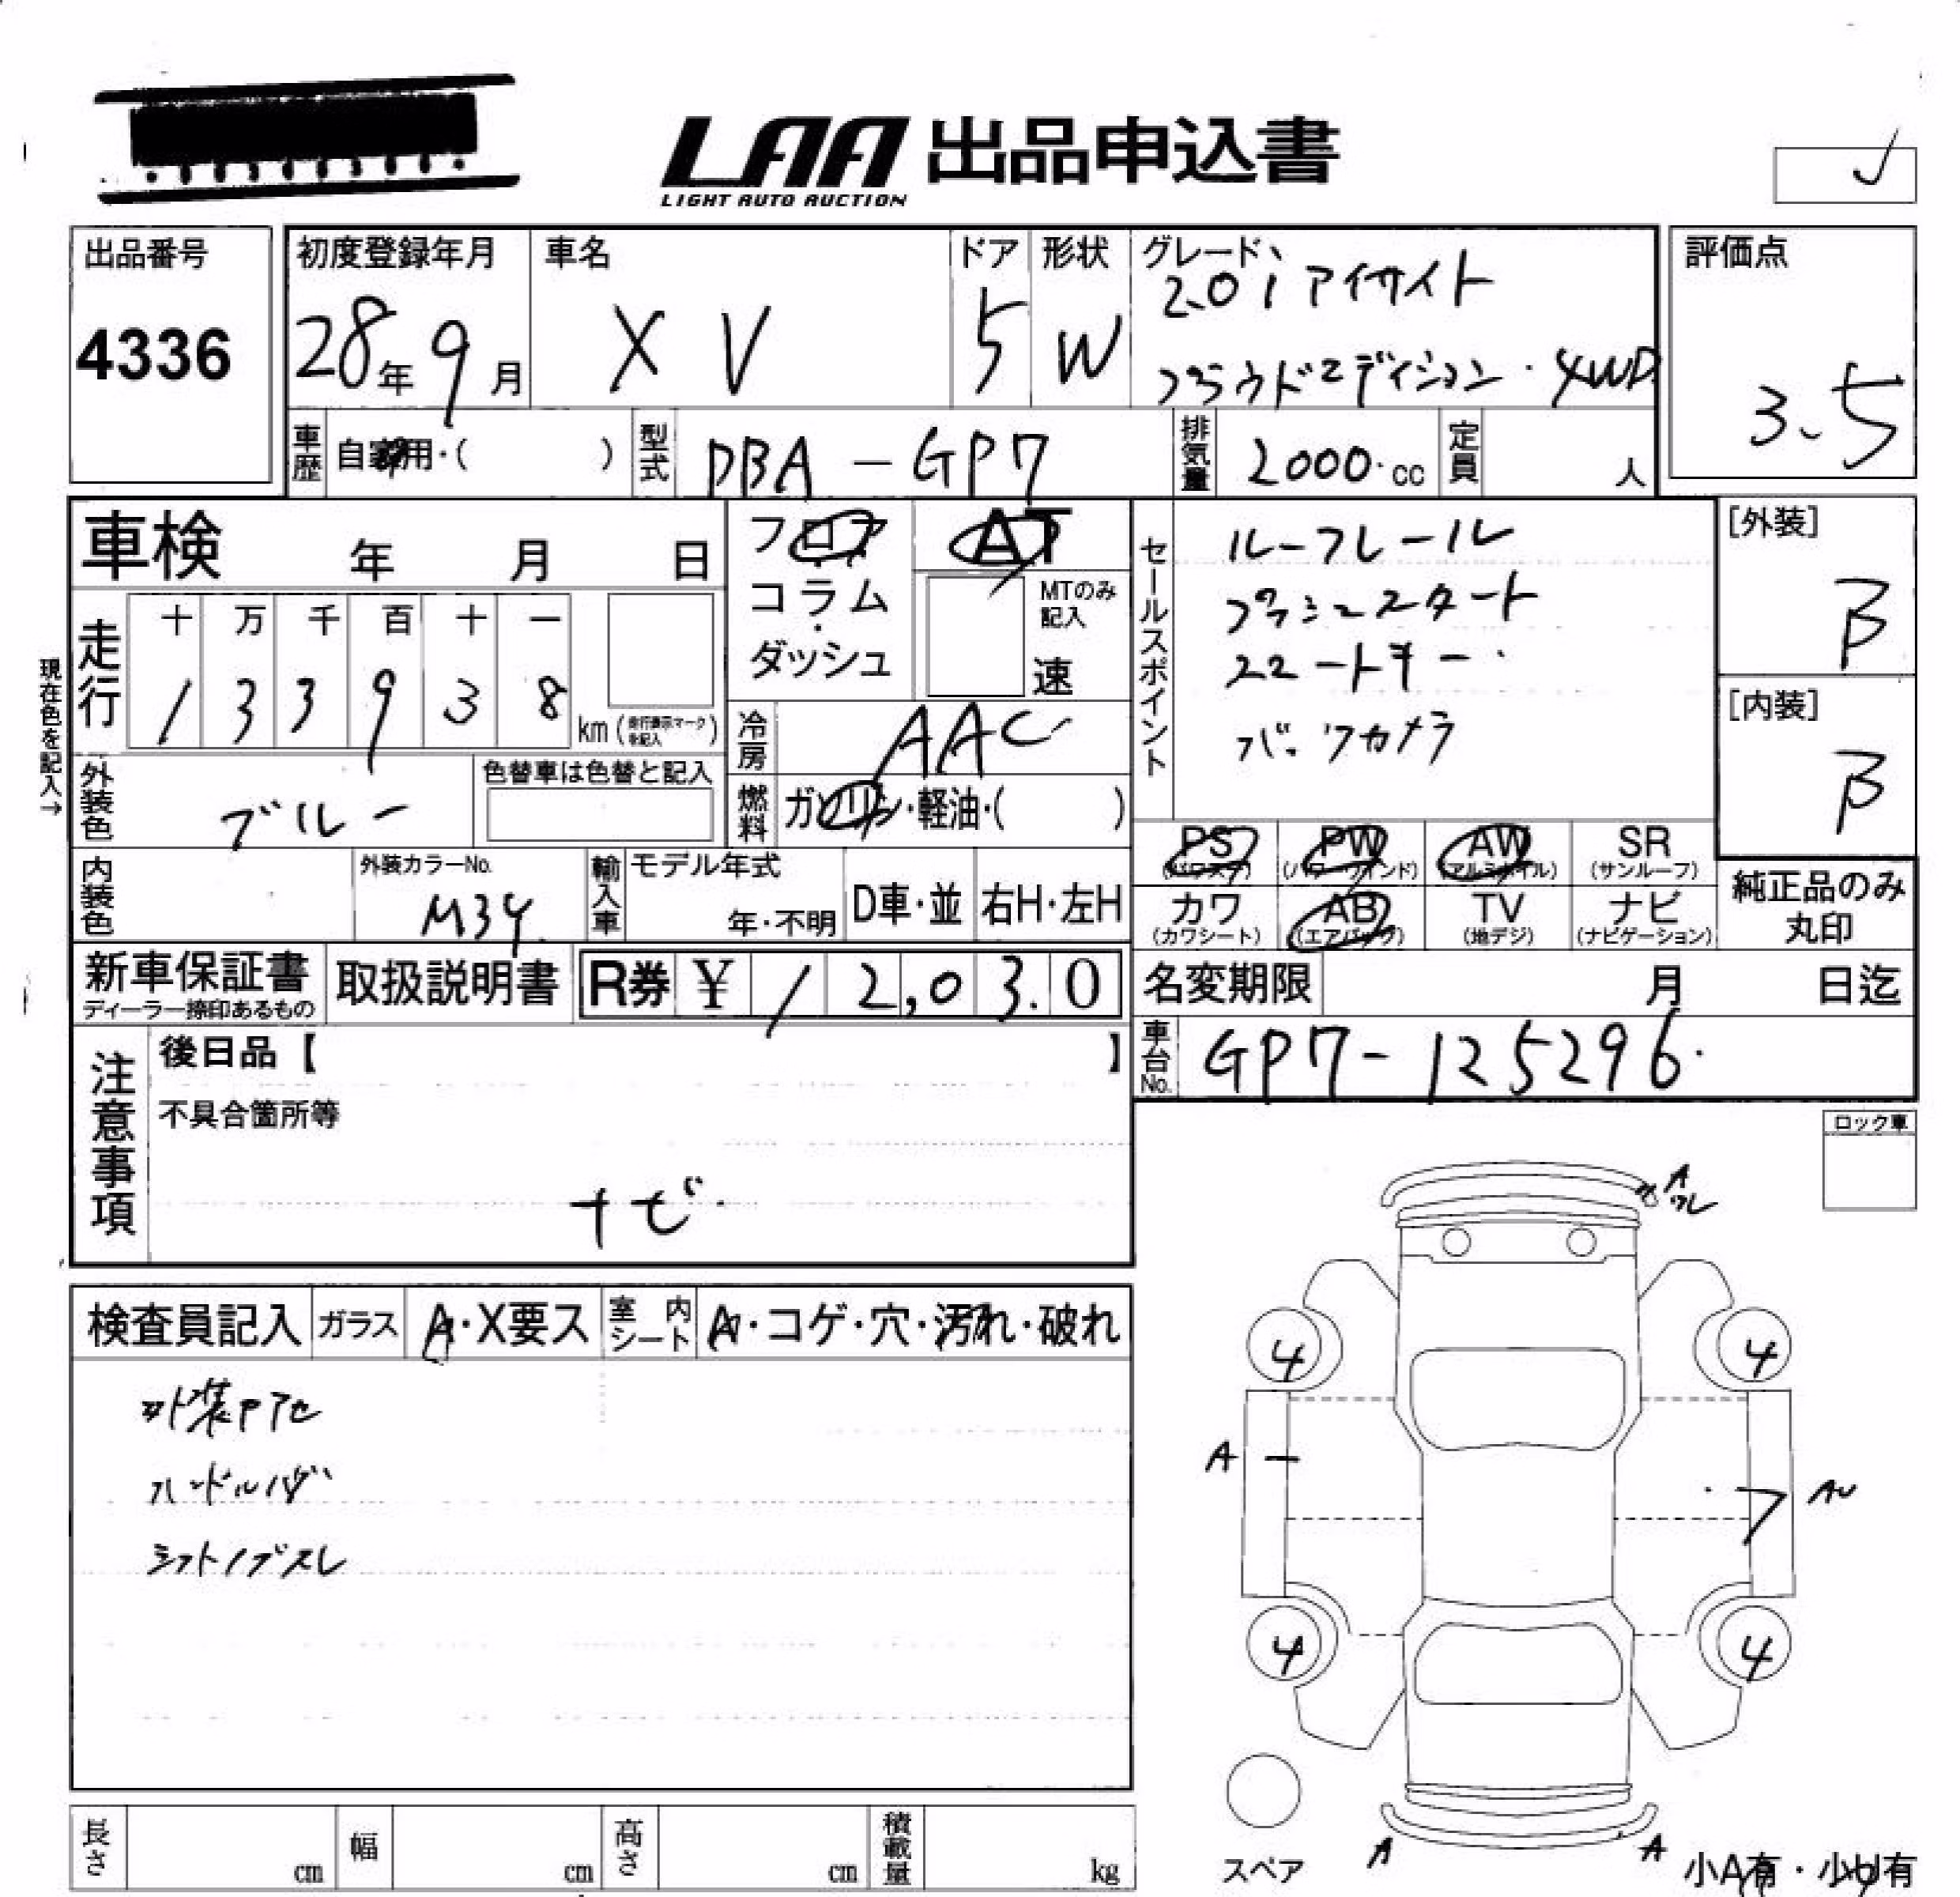 LAA 出品申込書
LIGHT AUTO AUCTION
出品番号
4336
初度登録年月
28年 9月
車名
XV
ドア
5
形状
W
グレード
2.0i アイサイト
プラウドエディション・4WD
評価点
3.5
車歴 自家用・( )
型式 DBA-GP7
排気量 2000.cc
定員 人
車検 年 月 日
フロア
コラム
ダッシュ
AT
MTのみ記入
速
セールスポイント
ルーフレール
プッシュスタート
スマートキー
バックカメラ
[外装]
B
[内装]
B
現在色を記入→
走行
十 万 千 百 十 一
1 3 3 9 3 8
km (走行表示マークを記入)
冷房 AAC
外装色 ブルー
色替車は色替と記入
燃料 ガソリン・軽油・( )
PS (パワステ)
PW (パワーウインド)
AW (アルミホイル)
SR (サンルーフ)
カワ (カワシート)
AB (エアバック)
TV (地デジ)
ナビ (ナビゲーション)
純正品のみ
丸印
内装色
外装カラーNo.
M3Y
輸入車
モデル年式
年・不明
D車・並
右H・左H
新車保証書
ディーラー捺印あるもの
取扱説明書
R券 ¥ 12,03.0
名変期限 月 日迄
車台No. GP7-125296
注意事項
後日品【 】
不具合箇所等
ナビ
ロック車
A
ワレ
検査員記入
ガラス A・X要ス
室内シート A・コゲ・穴・汚れ・破れ
外装キアセ
ハンドルハゲ
シフトノブスレ
4 4
A
AU
4 4
スペア
A A
小A有・小U有
長さ cm
幅 cm
高さ cm
積載量 kg